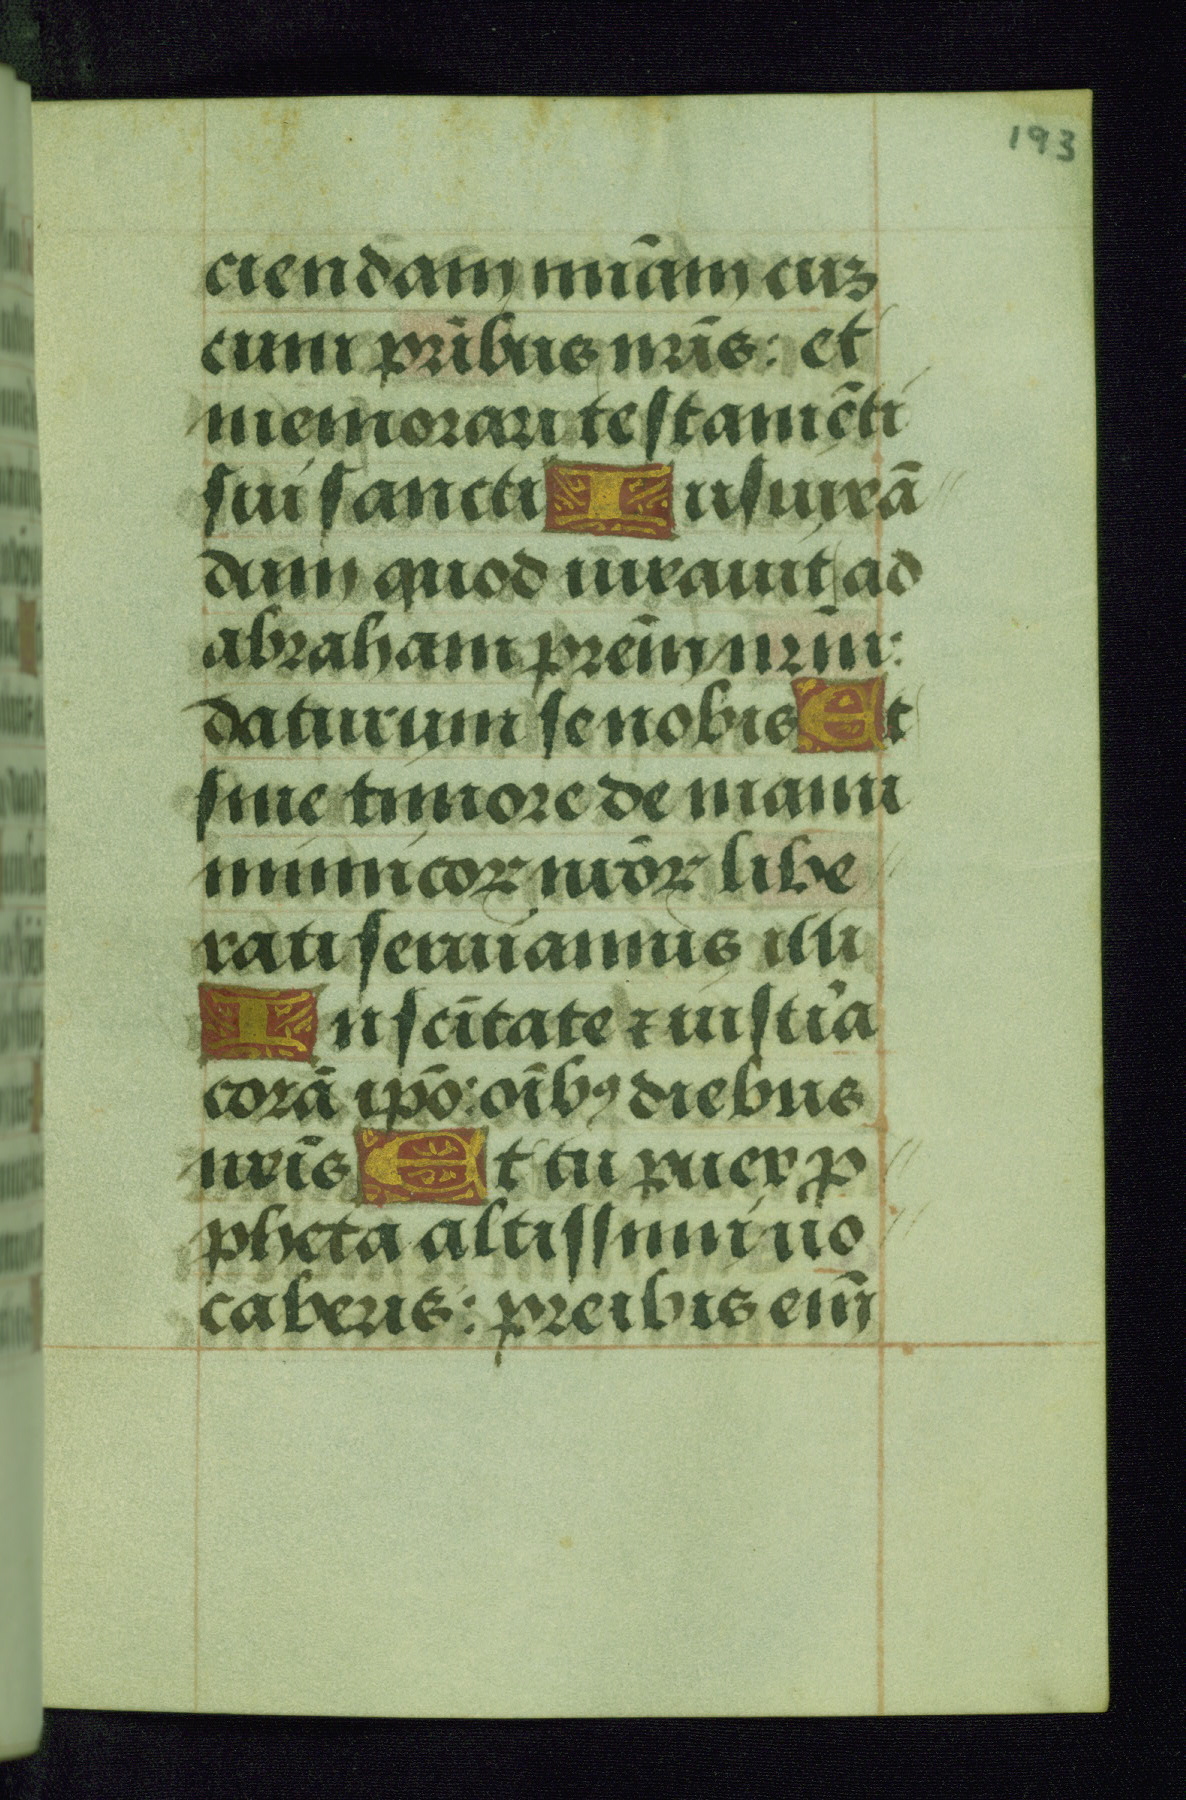 193
ciendam miãm cuz
cum prībus nrīs: et
memorari testamẽti
sui sancti Iusiurã
dum quod iurauit ad
abraham prēm nrm̄:
daturum se nobis Et
sine timore de manu
inimicoꝝ nrōꝝ libe
rati seruiamus illi
In scītate ⁊ iustiªa
corã ipō: oībꝰ diebus
nrīs Et tu puer ꝓ
pheta altissimi uo
caberis: preibis enim̄